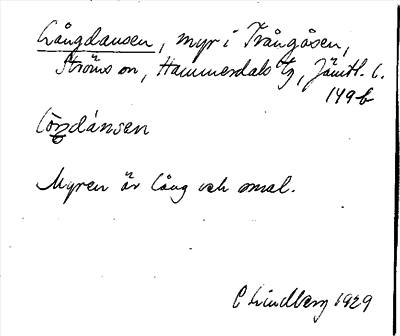 Långdansen, myr i Trångåsen,
Ströms sn, Hammerdals tg, Jämtl. l.
149 b
Lå̄ŋdánsen
Myren är lång och smal.
C Lindberg 1929